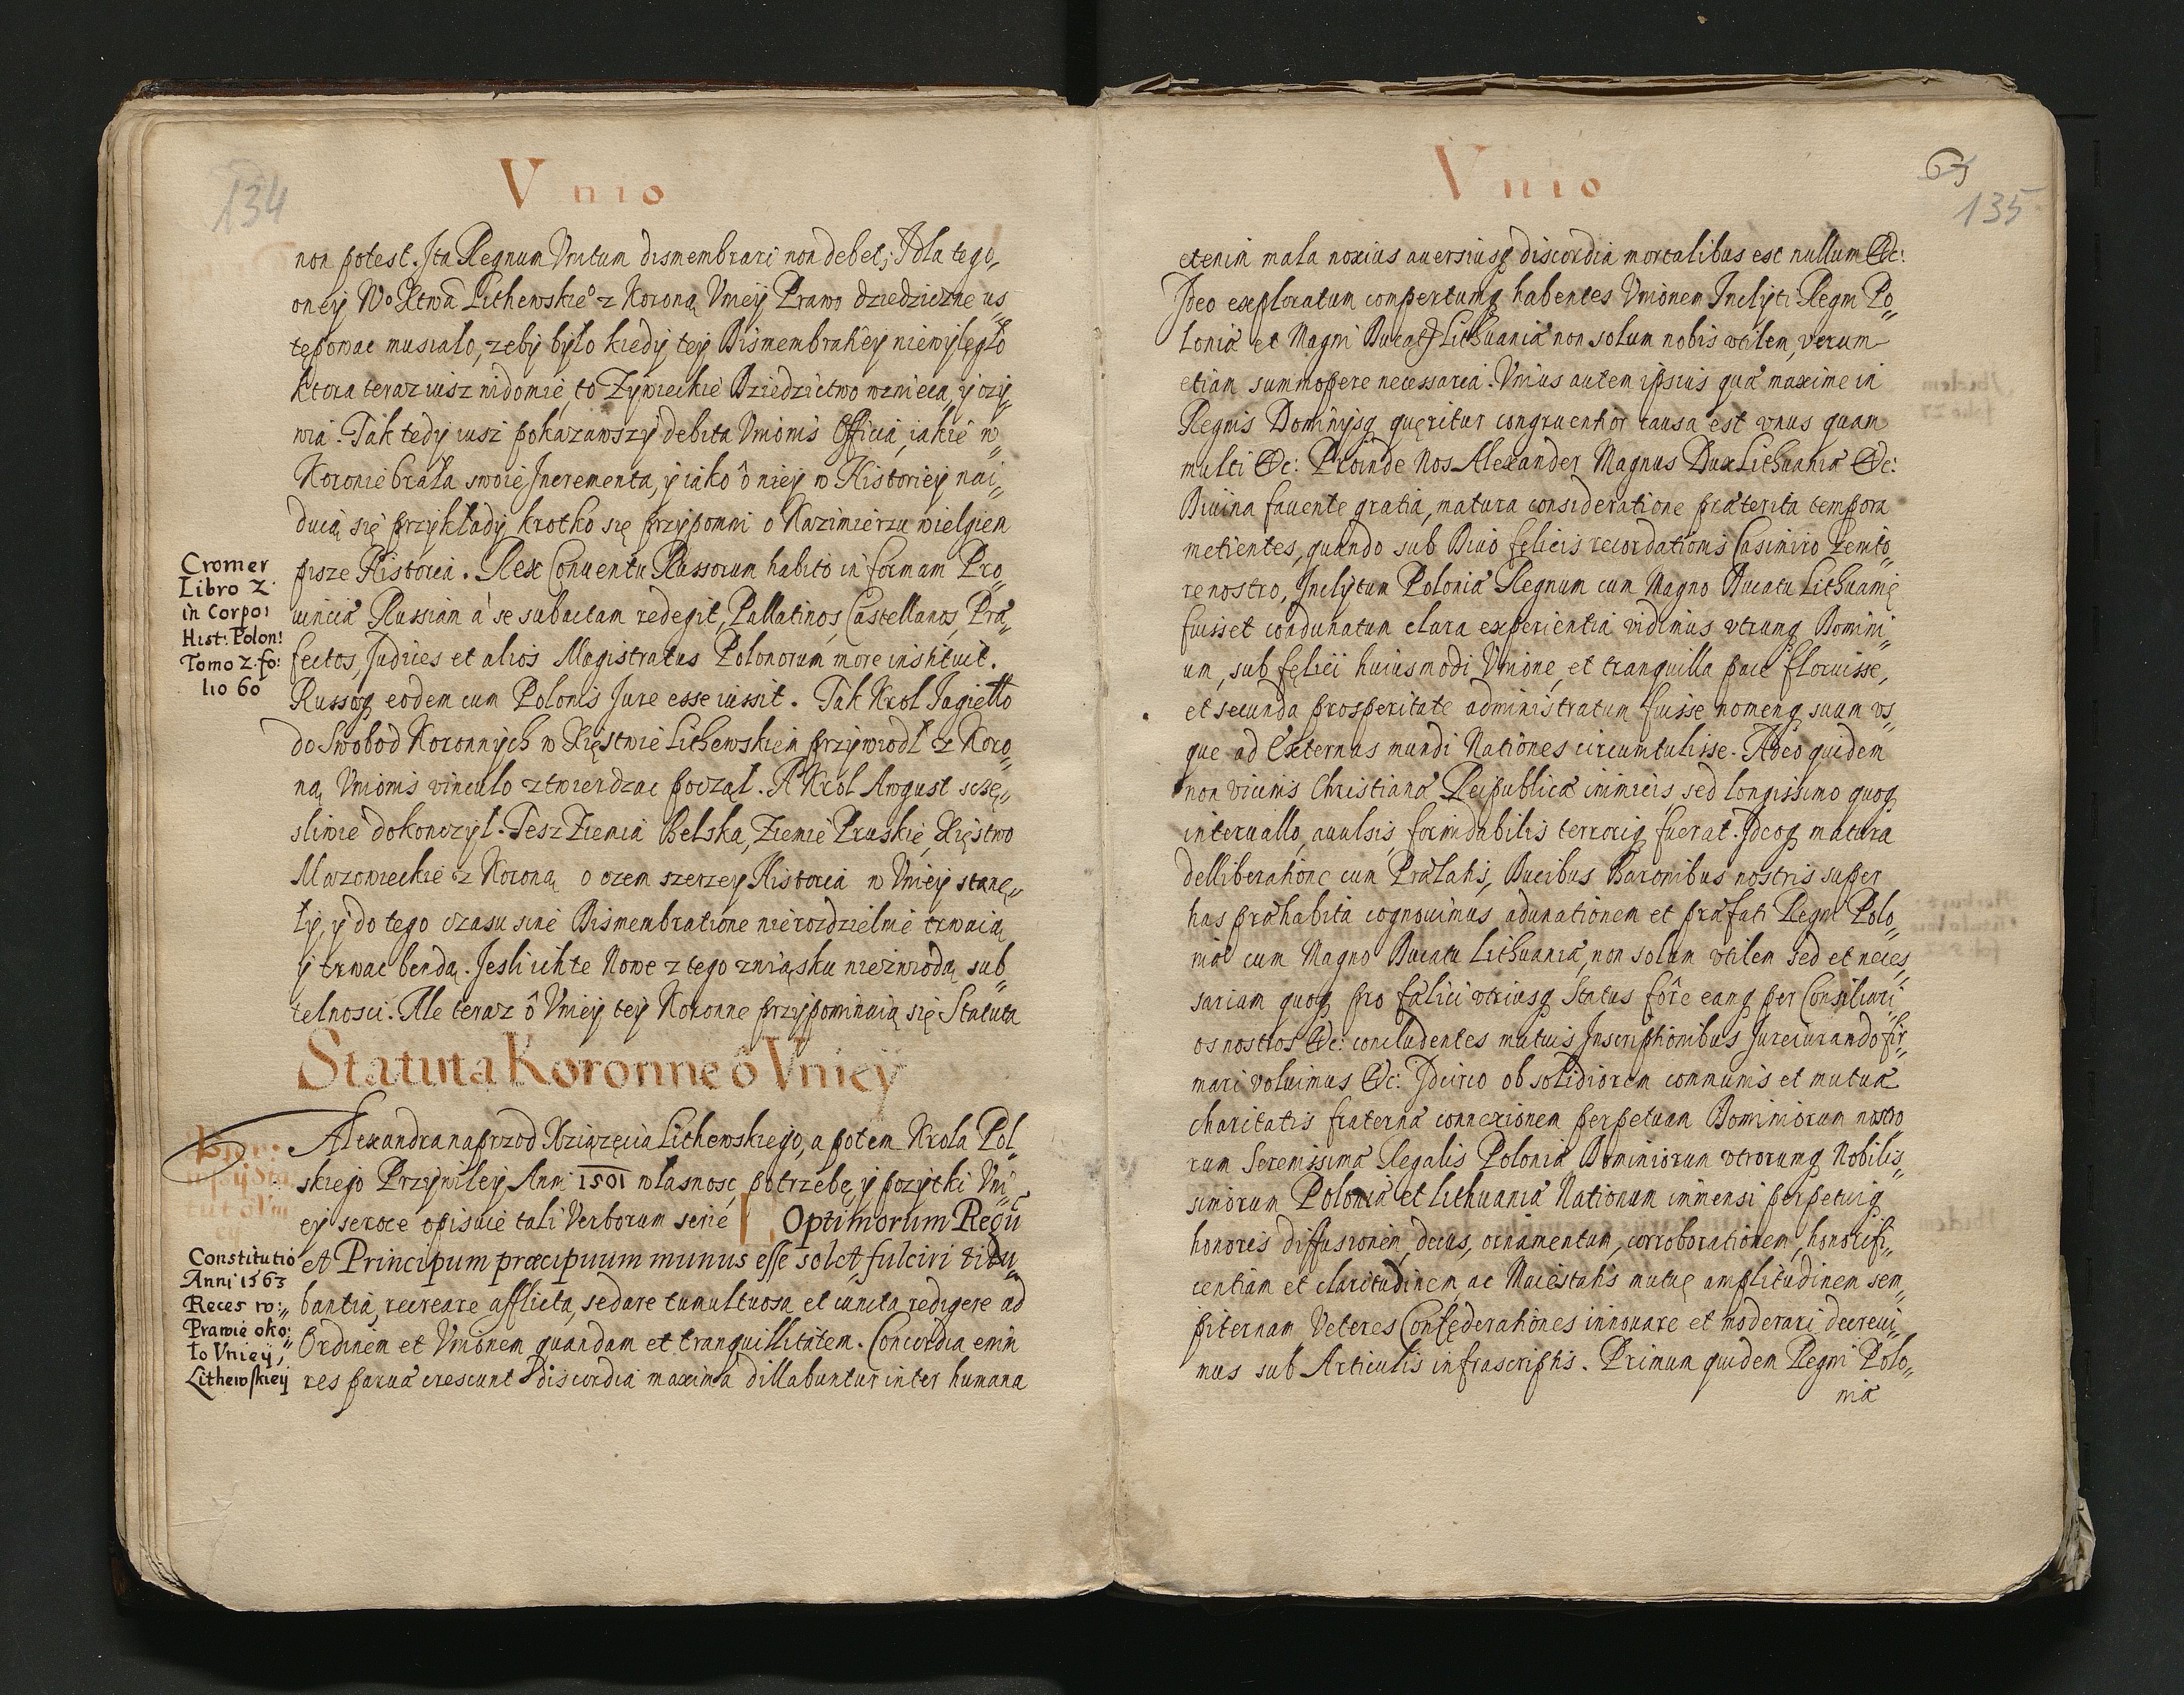 134
Vnio
non potest. Ita Regnum Vnitum dismembrari non debet; I dla tego,
oney Wo Xtwa Lithewskie° z Koroną Vniey Prawo dziedziczne us„
tępowac musiało, zeby było kiedy tey Dismembratiey niewylęgło
ktora teraz iusz widomie, to Zywieckie Dziedzictwo wznieca, y ozy„
wia. Tak tedy iusz pokazawszy debita Vnionis Officia, iakie w„
Koronie brała swoie Incrementa, y iako ô niey w Historiey nai„
duią się przykłady krotko się przypomni o Kazimierzu wielgiem
pisze Historia. Rex Conuentu Russorum habito in formam Pro„
uinciæ Russiam à se subactam redegit, Pallatinos, Castellanos, Præ„
fectos, Judices et alios Magistratus Polonorum more instituit.
Russosq eodem cum Polonis Jure esse iussit. Tak Krol Jagiełło
do Swobod Koronnych w Xięstwie Lithewskiem przywiodł z Koro„
ną Vnionis vinculo ztwierdzac począł. A Krol August szczę„
sliwie dokonczył. Tesz Ziemia Belska, Ziemie Pruskie, Xięstwo
Mazowieckie z Koroną o czem szerzey Historia w Vniey stanę„
ły, y do tego czasu sine Dismembratione nierozdzielnie trwaią
y trwac bendą. Jesli ichte Nowe z tego związku niezwiodą sub„
telnosci. Ale teraz ô Vniey tey Koronne przypominaią się Statuta
Cromer
Libro 2
in Corpor
Hist: Polon:
Tomo 2. fo:
lio 60
Statuta Koronne ô Vniey
Alexandra naprzod Xziązęcia Lithewskiego, a potem Krola Pol„
skiego Przywiley Anni 1501 własnosc, potrzebę, y pozytki Vni„
ey seroce opisuie tali Verborum serie Optimorum Regu
et Principum præcipuum munus esse solet, fulciri titu„
bantia, recreare afflicta, sedare tumultuosa et cuncta redigere ad
Ordinem et Vnionem quandam et tranquillitatem. Concordia enim
res paruæ crescunt discordia maximæ dillabuntur inter humana
Constitutio
Anni 1563
Reces w:„
Prawie oko:
ło Vniey„
Lithewskiey
Vnio
65
135
etenim mala noxius auersiusq discordia mortalibus est nullum &c:
Ideo exploratum compertumq habentes Vnionem Inclyti Regni Po„
loniæ et Magni Ducatq Lithuaniæ non solum nobis vtilem, verum
etiam summopere necessaria. Vnius autem ipsius quæ maxime in
Regnis Dominijsq quęritur congruentior causa est vnus quam
multi &c: Proinde Nos Alexander Magnus Dux Lithuaniæ &c:
Diuina fauente gratia, matura consideratione præterita tempora
metientes, quando sub Diuo felicis recordationis Casimiro Genito„
re nostro, Inclytum Poloniæ Regnum cum Magno Ducatu Lithuanię
fuisset coadunatum clara experientia vidimus vtrumq Domini„
um, sub fęlici huiusmodi Vnione, et tranquilla pace floruisse,
et secunda prosperitate administratum fuisse nomenq suum vs„
que ad Externas mundi Nationes circumtulisse. Adeo quidem
non vicinis Christianæ Reipublicæ inimicis, sed longissimo quoq
interuallo, auulsis, formidabilis terroriq fuerat. Ideoq matura
delliberatione cum Prælatis, Ducibus Baronibus nostris super
has præhabita cognouimus adunationem et præfati Regni Polo„
niæ cum Magno Ducatu Lithuaniæ, non solum vtilem sed et neces„
sariam quoq pro fælici vtriusq Status fôre eamq per Consiliari„
os nostros &c: concludentes mutuis Inscriptionibus Jureiurando fir„
mari voluimus &c: Idcirco ob solidiorem communis et mutuæ
charitatis fraternæ connexionem perpetuam Dominiorum nostro
rum Serenissimæ Regalis Poloniæ Dominiorum vtrorumq Nobilis„
simorum Poloniæ et Lithuaniæ Nationum immensi perpetuiq
honoris diffusionem, decus, ornamentum, corroborationem, honorifi„
centiam et claritudinem, ac Maiestatis mutuę amplitudinem sem„
piternam Veteres Confęderationes innouare et moderari decreui„
mus sub Articulis infrascriptis. Primum quidem Regni Polo„
niæ